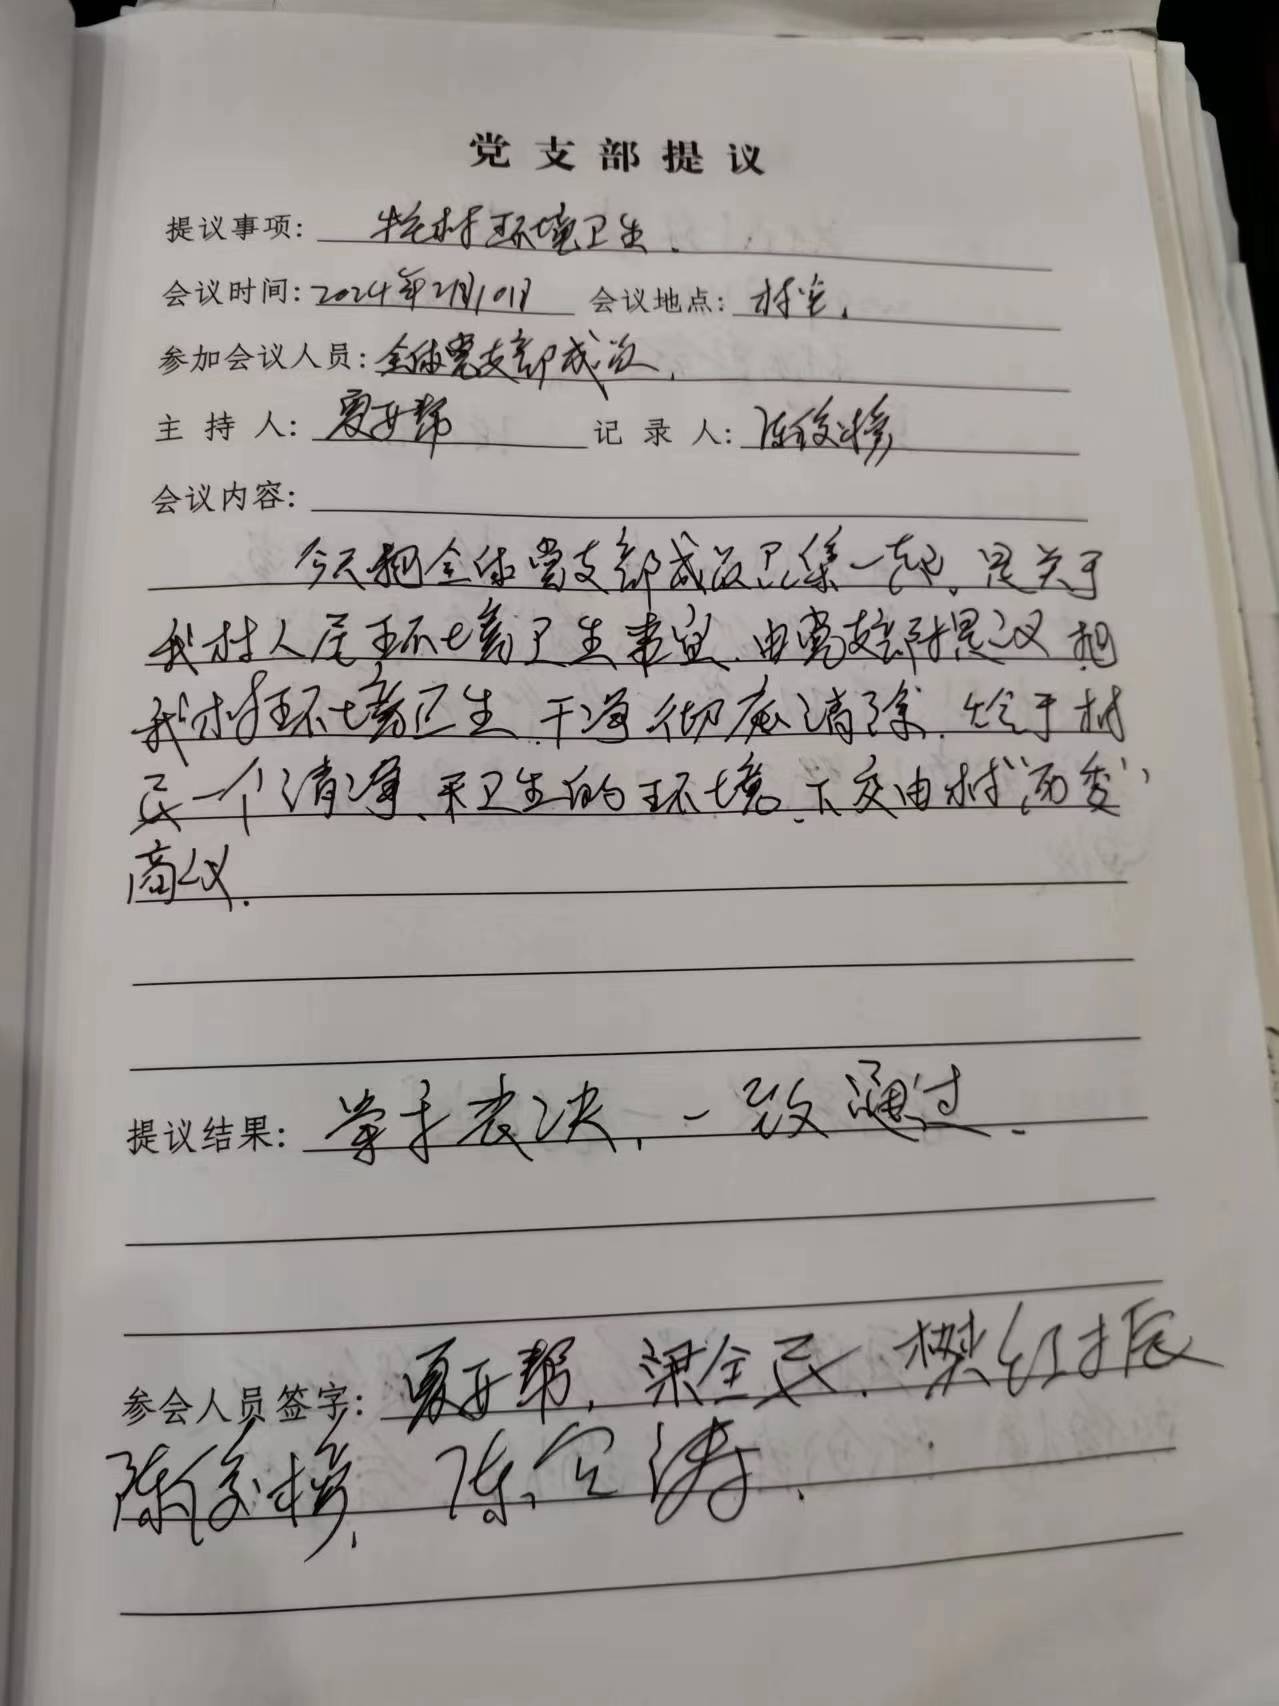 党支部提议
提议事项: 村环境卫生.
会议时间: 2024年2月10日 会议地点: 村室.
参加会议人员: 全体党支部成员.
主持人: 夏安帮 记录人: 陈俊榜
会议内容:
今天把全体党支部成员召集一起, 是关于
我村人居环境卫生事宜. 由党支部提议 把
我村环境卫生 干净彻底清除. 给予村
民一个清净、卫生的环境. 下交由村"两委"
商议.
提议结果: 举手表决, 一致通过.
参会人员签字: 夏安帮, 梁全民. 樊红振
陈俊榜, 陈宝涛.